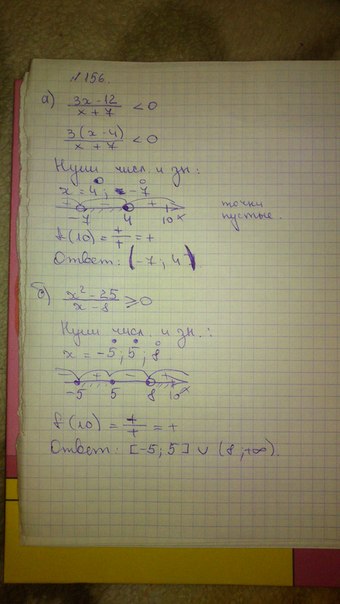 №156.
а) (3x-12)/(x+7) < 0
(3(x-4))/(x+7) < 0
Нули числ. и зн.:
x = 4; -7
+ - +
-7 4 10 x
точки
пустые.
f(10) = +/+ = +
Ответ: (-7; 4)
б) (x²-25)/(x-8) ≥ 0
Нули числ. и зн.:
x = -5; 5; 8
- + - +
-5 5 8 10 x
f(10) = +/+ = +
Ответ: [-5; 5] ∪ (8; +∞).